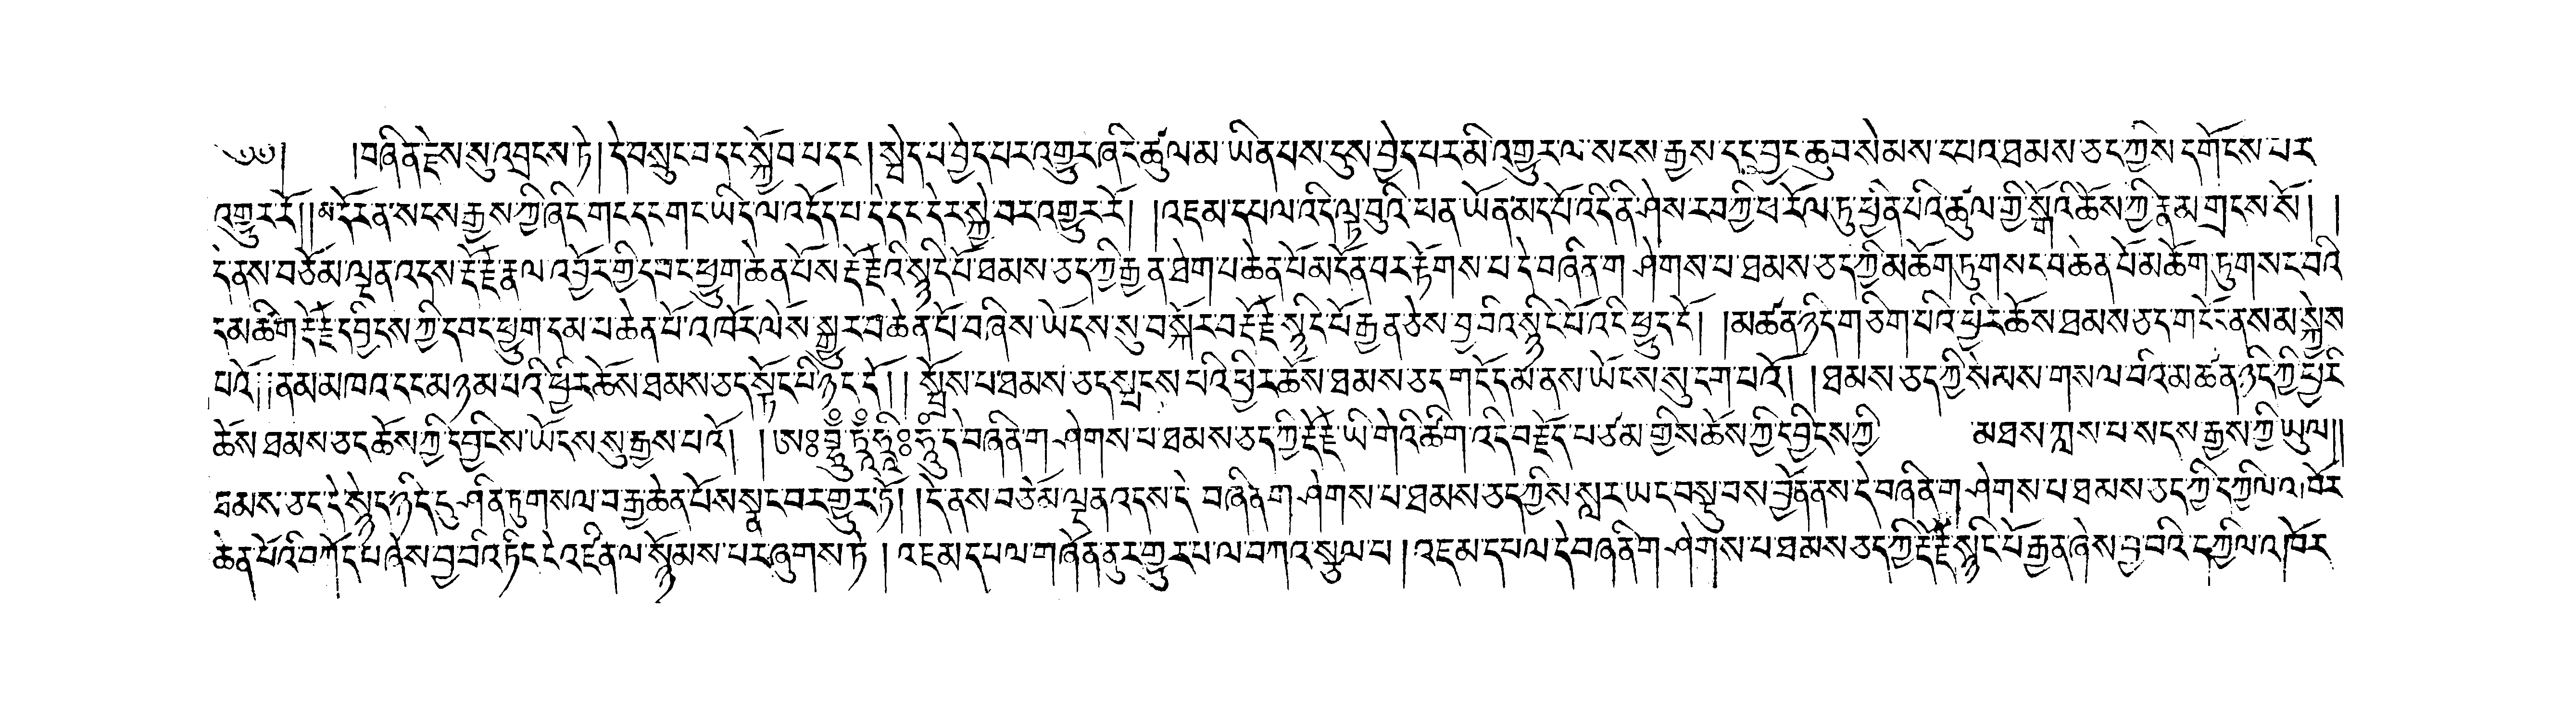 ༄༅། །བཞིན་རྗེས་སུ་འབྲངས་ཏེ། དེ་བསྲུང་བ་དང་སྐྱོབ་པ་དང་། སྦེད་པ་བྱེད་པར་འགྱུར་ཞིང་ཚུལ་མ་ཡིན་པས་དུས་བྱེད་པར་མི་འགྱུར་ལ་སངས་རྒྱས་དང་བྱང་ཆུབ་སེམས་དཔའ་ཐམས་ཅད་ཀྱིས་དགོངས་པར་
འགྱུར་རོ། །མདོར་ན་སངས་རྒྱས་ཀྱི་ཞིང་གང་དང་གང་ཡིད་ལ་འདོད་པ་དེ་དང་དེར་སྐྱེ་བར་འགྱུར་རོ། །འཇམ་དཔལ་འདི་ལྟ་བུའི་ཕན་ཡོན་མདོ་པོ་འདི་ནི་ཤེས་རབ་ཀྱི་ཕ་རོལ་ཏུ་ཕྱིན་པའི་ཚུལ་གྱི་སྒོའི་ཆོས་ཀྱི་རྣམ་གྲངས་སོ། །
དེ་ནས་བཅོམ་ལྡན་འདས་རྡོ་རྗེ་རྣལ་འབྱོར་གྱི་དབང་ཕྱུག་ཆེན་པོས་རྡོ་རྗེའི་སྙིང་པོ་ཐམས་ཅད་ཀྱི་རྒྱན་ཐེག་པ་ཆེན་པོ་མངོན་པར་རྟོགས་པ་དེ་བཞིན་གཤེགས་པ་ཐམས་ཅད་ཀྱི་མཆོག་ཏུ་གསང་བ་ཆེན་པོ་མཆོག་ཏུ་གསང་བའི་
དམ་ཚིག་རྡོ་རྗེ་དབྱིངས་ཀྱི་དབང་ཕྱུག་དམ་པ་ཆེན་པོ་འཁོར་ལོས་སྒྱུར་བ་ཆེན་པོ་བཞིས་ཡོངས་སུ་བསྐོར་བ་རྡོ་རྗེ་སྙིང་པོ་རྒྱན་ཅེས་བྱ་བའི་སྙིང་པོ་འདི་ཕྱུང་ངོ་། །མཚན་ཉིད་གཅིག་པའི་ཕྱིར་ཆོས་ཐམས་ཅད་གདོད་ནས་མ་སྐྱེས་
པའོ། །ནམ་མཁའ་དང་མཉམ་པའི་ཕྱིར་ཆོས་ཐམས་ཅད་སྟོང་པ་ཉིད་དོ། །སྤྲོས་པ་ཐམས་ཅད་སྤངས་པའི་ཕྱིར་ཆོས་ཐམས་ཅད་གདོད་མ་ནས་ཡོངས་སུ་དག་པའོ། །ཐམས་ཅད་ཀྱི་སེམས་གསལ་བའི་མཚན་ཉིད་ཀྱི་ཕྱིར་
ཆོས་ཐམས་ཅད་ཆོས་ཀྱི་དབྱིངས་ཡོངས་སུ་རྒྱས་པའོ། །དེ་བཞིན་གཤེགས་པ་ཐམས་ཅད་ཀྱི་རྡོ་རྗེ་ཡི་གེའི་ཚིག་འདི་བརྗོད་པ་ཙམ་གྱིས་ཆོས་ཀྱི་དབྱིངས་ཀྱི་ མཐས་ཀླས་པ་སངས་རྒྱས་ཀྱི་ཡུལ།།
ཐམས་ཅད་དེ་སྙེད་ཉིད་དུ་ཤིན་ཏུ་གསལ་བ་རྒྱ་ཆེན་པོས་སྣང་བར་གྱུར་ཏོ། །དེ་ནས་བཅོམ་ལྡན་འདས་དེ་བཞིན་གཤེགས་པ་ཐམས་ཅད་ཀྱིས་སླར་ཡང་བསྡུ་བས་བྱོན་ནས་དེ་བཞིན་གཤེགས་པ་ཐམས་ཅད་ཀྱི་དཀྱིལ་འཁོར་
ཆེན་པོའི་བཀོད་པ་ཞེས་བྱ་བའི་ཏིང་ངེ་འཛིན་ལ་སྙོམས་པར་ཞུགས་ཏེ། འཇམ་དཔལ་གཞོན་ནུར་གྱུར་པ་ལ་བཀའ་སྩལ་པ། འཇམ་དཔལ་དེ་བཞིན་གཤེགས་པ་ཐམས་ཅད་ཀྱི་རྡོ་རྗེ་སྙིང་པོ་རྒྱན་ཞེས་བྱ་བའི་དཀྱིལ་འཁོར་